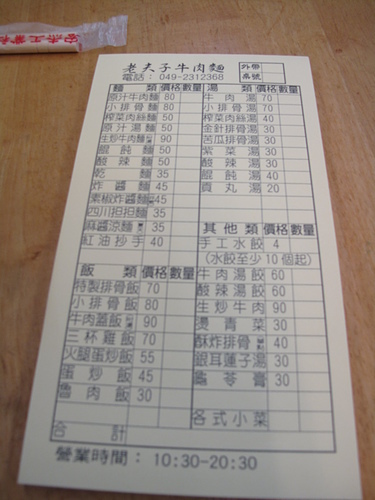 老夫子牛肉麵
電話：049-2312368
外帶
桌號
麵類 價格 數量
原汁牛肉麵 80
小排骨麵 80
榨菜肉絲麵 50
原汁湯麵 50
生炒牛肉麵 90
餛飩麵 50
酸辣麵 50
乾麵 35
炸醬麵 45
素椒炸醬麵 45
四川担担麵 35
麻醬涼麵 35
紅油抄手 40
飯類 價格 數量
特製排骨飯 70
小排骨飯 80
牛肉蓋飯 90
三杯雞飯 70
火腿蛋炒飯 55
蛋炒飯 45
魯肉飯 30
合計
湯類 價格 數量
牛肉湯 70
小排骨湯 70
榨菜肉絲湯 40
金針排骨湯 30
苦瓜排骨湯 30
紫菜湯 30
酸辣湯 30
餛飩湯 40
貢丸湯 20
其他類 價格 數量
手工水餃 4
(水餃至少10個起)
牛肉湯餃 60
酸辣湯餃 60
生炒牛肉 90
燙青菜 30
酥炸排骨 40
銀耳蓮子湯 30
龜苓膏 30
各式小菜
營業時間：10:30-20:30